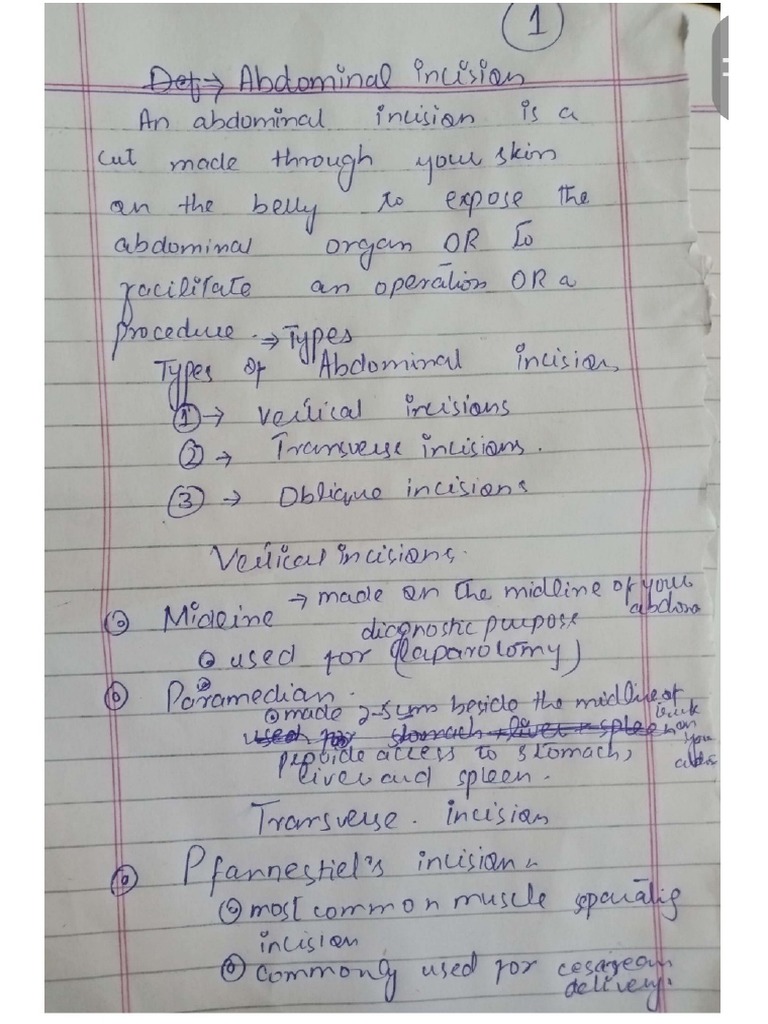 1
Def → Abdominal incision
An abdominal incision is a
cut made through your skin
on the belly to expose the
abdominal organ OR to
facilitate an operation OR a
procedure. → Types
Types of Abdominal incision,
① → Vertical incisions
② → Transverse incisions.
③ → Oblique incisions
Vertical incisions.
Midline → made on the midline of your abdom
used for diagnostic purpose (laparotomy)
Paramedian.
made 2-5cm beside the midline of
used for stomach + liver + spleen on your
provide access to stomach,
liver and spleen.
Transverse. incision
Pfannestiel's incision
most common muscle sparatig
incision
commonly used for cesarean
delivery.